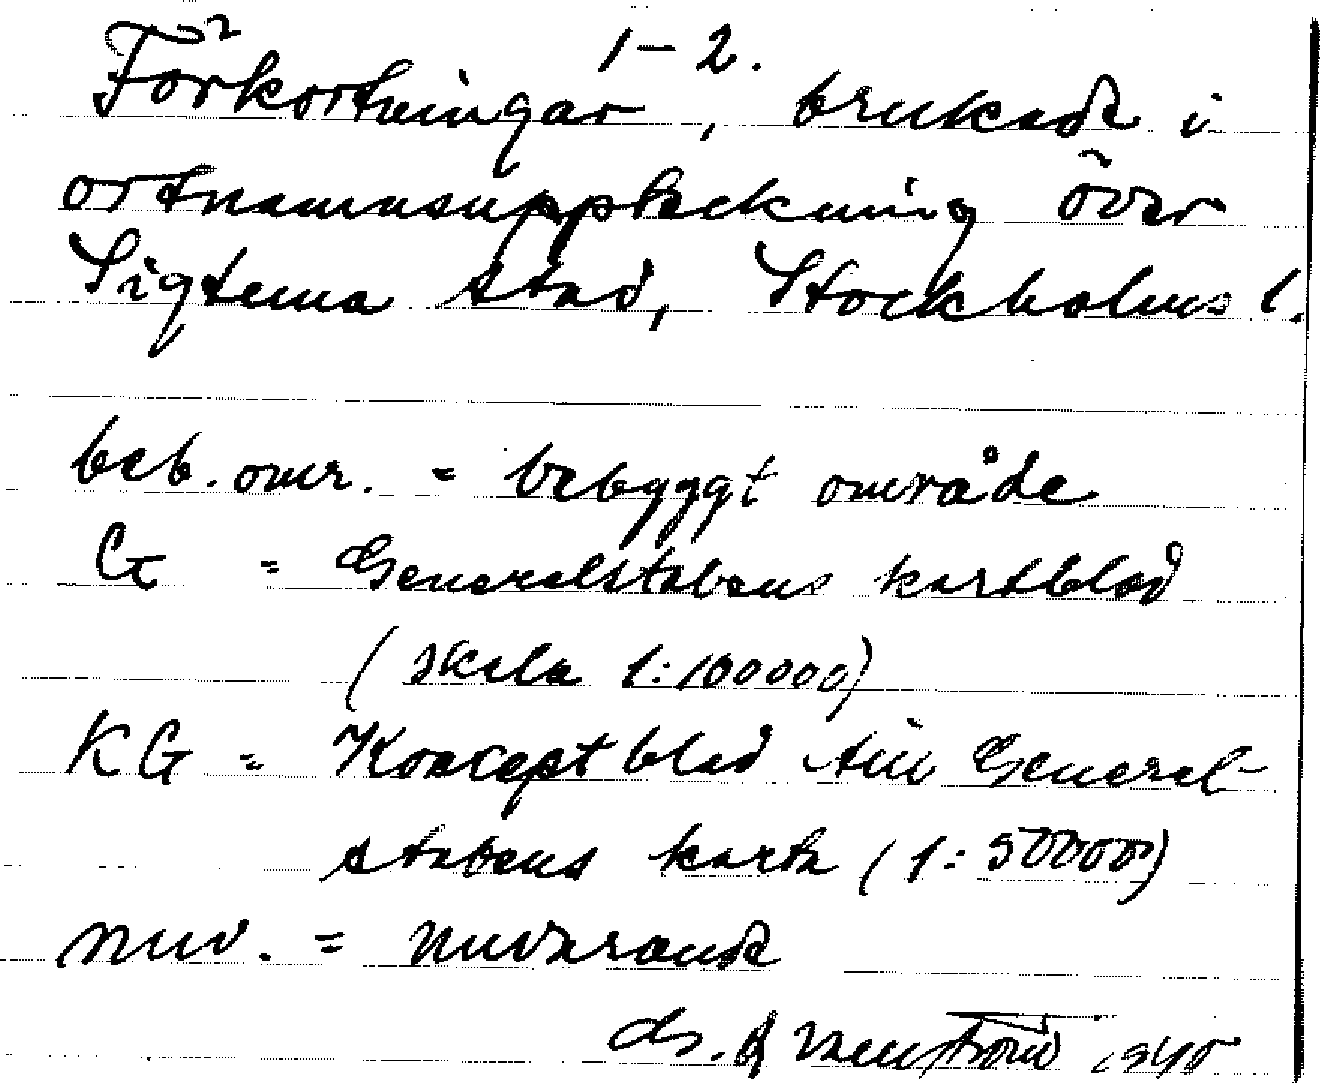 1-2.
Förkortningar, brukade i
ortnamnsuppteckning över
Sigtuna stad, Stockholms l.
beb. omr. = bebyggt område
G = Generalstabens kartblad
(skala 1:100000)
KG = Konceptblad till General-
stabens karta (1:50000)
nuv. = nuvarande